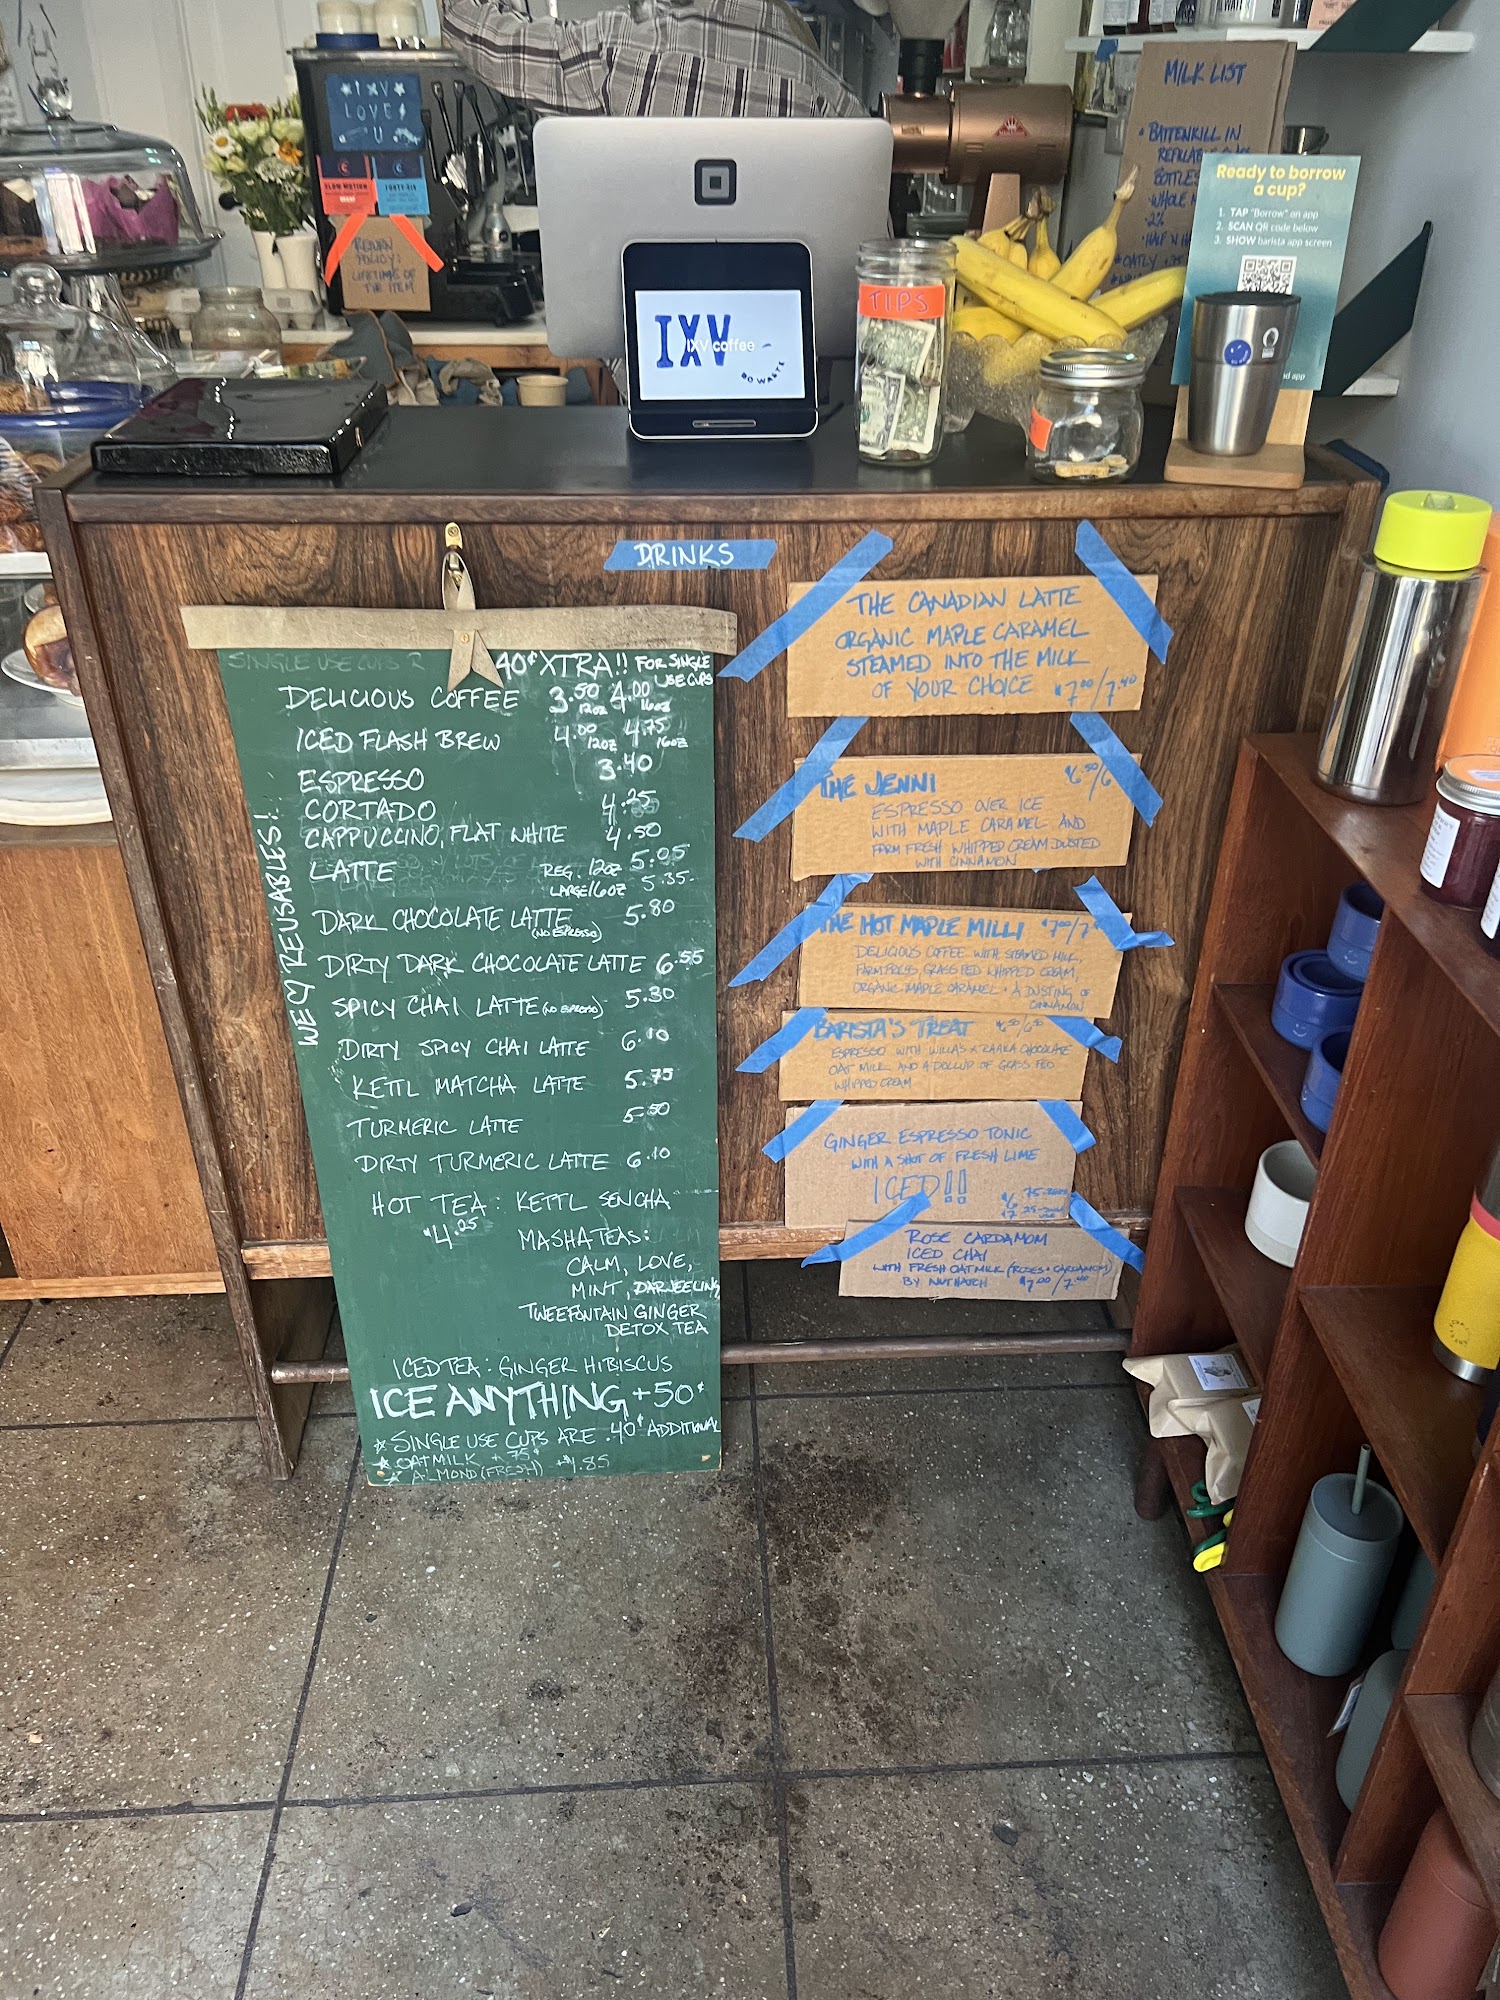 IXV
LOVES
U
SLOW MOTION
FORTY SIX
RETURN
POLICY:
LIFETIME OF
THE ITEM
IXV
IXV coffee
NO WASTE
TIPS
MILK LIST
• BATTENKILL IN
BOTTLES
• WHOLE
• 2%
Ready to borrow
a cup?
1. TAP "Borrow" on app
2. SCAN QR code below
3. SHOW barista app screen
DRINKS
SINGLE USE CUPS
40¢ XTRA!! FOR SINGLE
USE CUPS
DELICIOUS COFFEE 3.50 12oz 4.00 16oz
ICED FLASH BREW 4.00 12oz 4.75 16oz
ESPRESSO 3.40
CORTADO 4.25
CAPPUCCINO, FLAT WHITE 4.50
LATTE REG. 12oz 5.05
LARGE 16oz 5.35
DARK CHOCOLATE LATTE (NO ESPRESSO) 5.80
DIRTY DARK CHOCOLATE LATTE 6.55
SPICY CHAI LATTE (NO ESPRESSO) 5.30
DIRTY SPICY CHAI LATTE 6.10
KETTL MATCHA LATTE 5.75
TURMERIC LATTE 5.50
DIRTY TURMERIC LATTE 6.10
HOT TEA: KETTL SENCHA
$4.25 MASHATEAS:
CALM, LOVE,
MINT, DARJEELING
TWEEFONTAIN GINGER
DETOX TEA
ICED TEA: GINGER HIBISCUS
ICE ANYTHING +50¢
☆ SINGLE USE CUPS ARE .40¢ ADDITIONAL
★ OATMILK + 75¢
★ ALMOND (FRESH) +1.85
WE ♡ REUSABLES!
THE CANADIAN LATTE
ORGANIC MAPLE CARAMEL
STEAMED INTO THE MILK
OF YOUR CHOICE $7.00/7.40
THE JENNI $6.50/6
ESPRESSO OVER ICE
WITH MAPLE CARAMEL AND
FARM FRESH WHIPPED CREAM DUSTED
WITH CINNAMON
THE HOT MAPLE MILLI $7.00/7
DELICIOUS COFFEE WITH STEAMED MILK,
FARM FRESH, GRASS FED WHIPPED CREAM,
ORGANIC MAPLE CARAMEL + A DUSTING OF
CINNAMON
BARISTA'S TREAT
ESPRESSO WITH WILLA'S X RAAKA CHOCOLATE
OAT MILK AND A DOLLUP OF GRASS FED
WHIPPED CREAM
GINGER ESPRESSO TONIC
WITH A SHOT OF FRESH LIME
ICED!!
ROSE CARDAMOM
ICED CHAI
WITH FRESH OATMILK (ROSES + CARDAMOM)
BY NUTHATCH $7.00/7.40